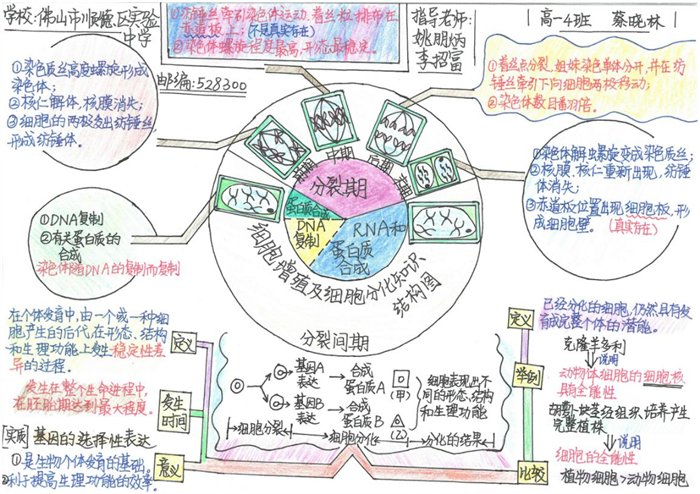 学校:佛山市顺德区实验
中学
①纺锤丝牵引染色体运动,着丝粒排布在
赤道板上;(不是真实存在)
②染色体螺旋程度最高,形态最稳定。
指导老师:
姚朋炳
李招富
高一4班 蔡晓林
邮编:528300
①染色质高度螺旋形成
染色体;
②核仁解体,核膜消失;
③细胞的两极发出纺锤丝,
形成纺锤体。
①着丝点分裂,姐妹染色单体分开,并在纺
锤丝牵引下向细胞两极移动;
②染色体数目翻倍。
①染色体解出螺旋变成染色质丝;
②核膜、核仁重新出现,纺锤
体消失;
③赤道板位置出现细胞板,形
成细胞壁。(真实存在)
①DNA复制
②有关蛋白质的
合成
染色体随DNA的复制而复制
前期
中期
后期
末期
分裂期
蛋白质合成
DNA
复制
RNA和
蛋白质
合成
细胞增殖及细胞分化知识
结构图
分裂间期
在个体发育中,由一个或一种细
胞产生的后代,在形态、结构
和生理功能上发生稳定性差
异的过程。
定义
发生在整个生命进程中,
在胚胎期达到最大程度。
发生
时间
[实质]基因的选择性表达
①是生物个体发育的基础。
②利于提高生理功能的效率。
意义
基因A
表达
合成
蛋白质A
(甲)
基因B
表达
合成
蛋白质B
(乙)
细胞表现出不
同的形态、结构
和生理功能
细胞分裂
细胞分化
分化的结果
定义
已经分化的细胞,仍然具有发
育成完整个体的潜能。
举例
克隆羊多利
说明
动物体细胞的细胞核
具全能性
胡萝卜块茎经组织培养产生
完整植株
说明
细胞的全能性
比较
植物细胞>动物细胞